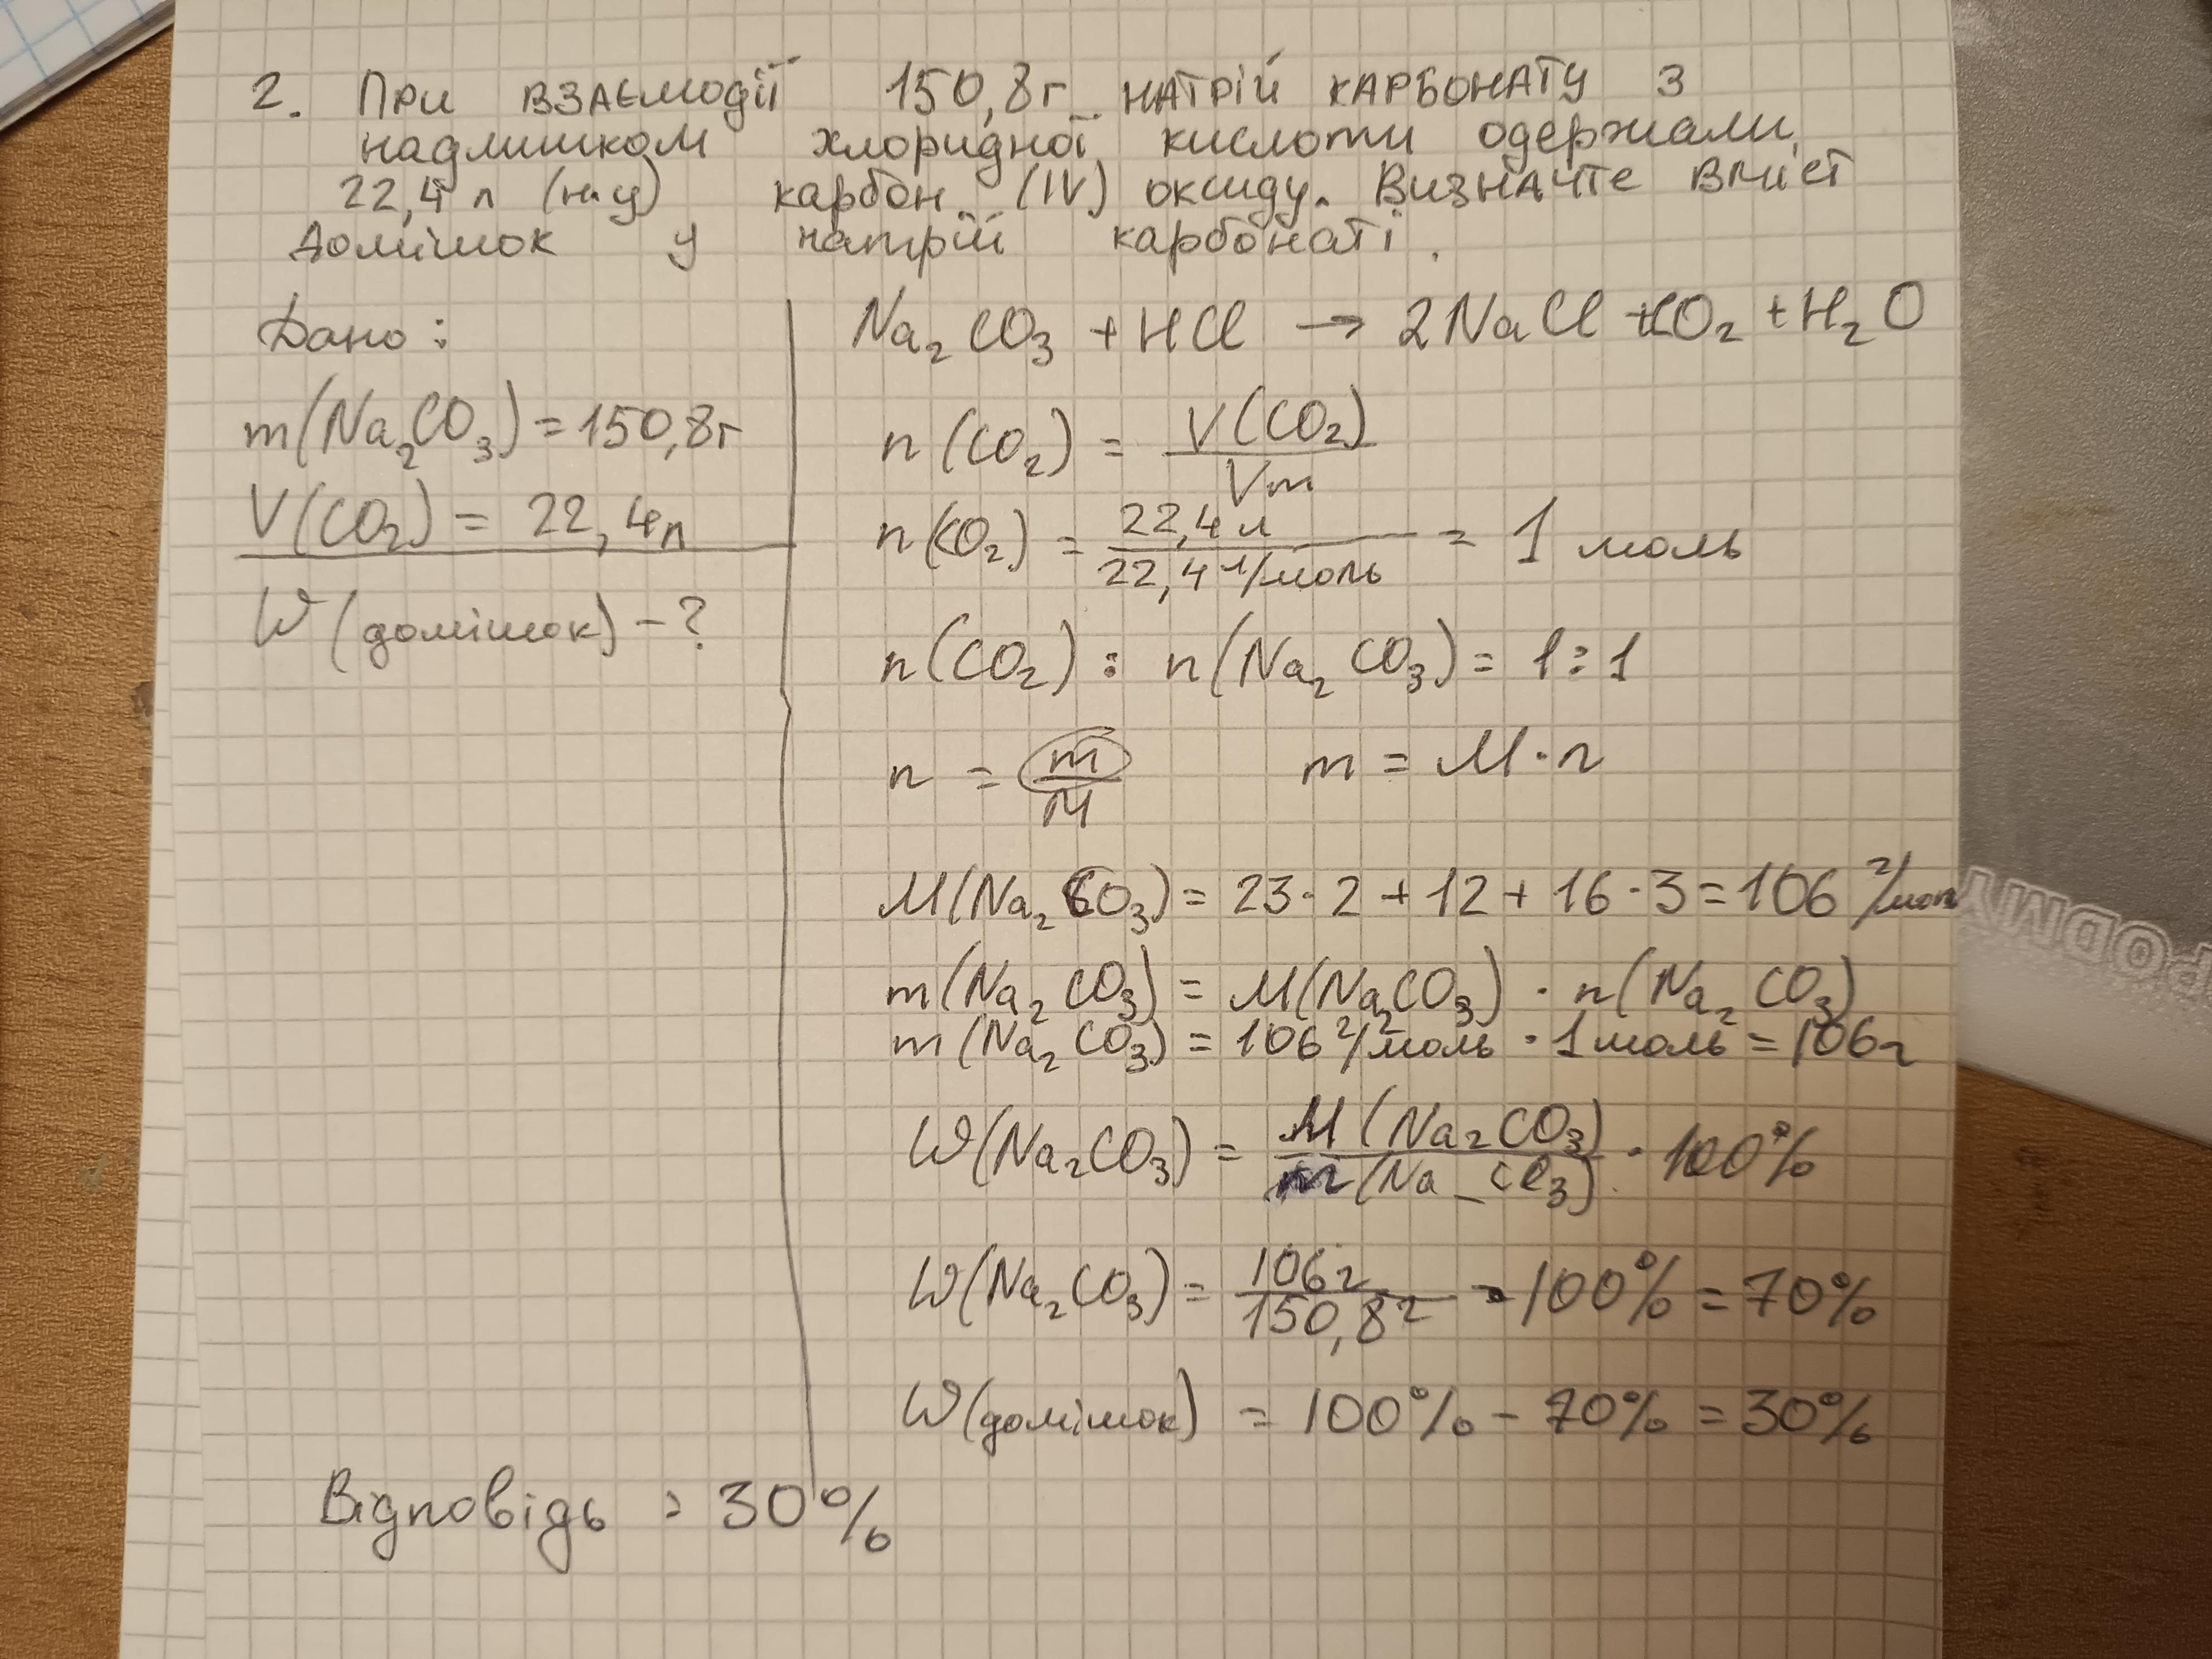 2. При взаємодії 150,8г натрій карбонату з
надлишком хлоридної кислоти одержали
22,4 л (н.у) карбон (IV) оксиду. Визначте вміст
домішок у натрій карбонаті.
Дано:
m(Na₂CO₃) = 150,8г
V(CO₂) = 22,4л
W(домішок) - ?
Na₂CO₃ + HCl → 2NaCl + CO₂ + H₂O
n(CO₂) = V(CO₂) / Vm
n(CO₂) = 22,4 л / 22,4 л/моль = 1 моль
n(CO₂) : n(Na₂CO₃) = 1:1
n = m / M m = M · n
M(Na₂CO₃) = 23 · 2 + 12 + 16 · 3 = 106 г/моль
m(Na₂CO₃) = M(Na₂CO₃) · n(Na₂CO₃)
m(Na₂CO₃) = 106 г/моль · 1 моль = 106г
W(Na₂CO₃) = M(Na₂CO₃) / m(Na_CO₃) · 100%
W(Na₂CO₃) = 106г / 150,8г · 100% = 70%
W(домішок) = 100% - 70% = 30%
Відповідь = 30%
PODMY